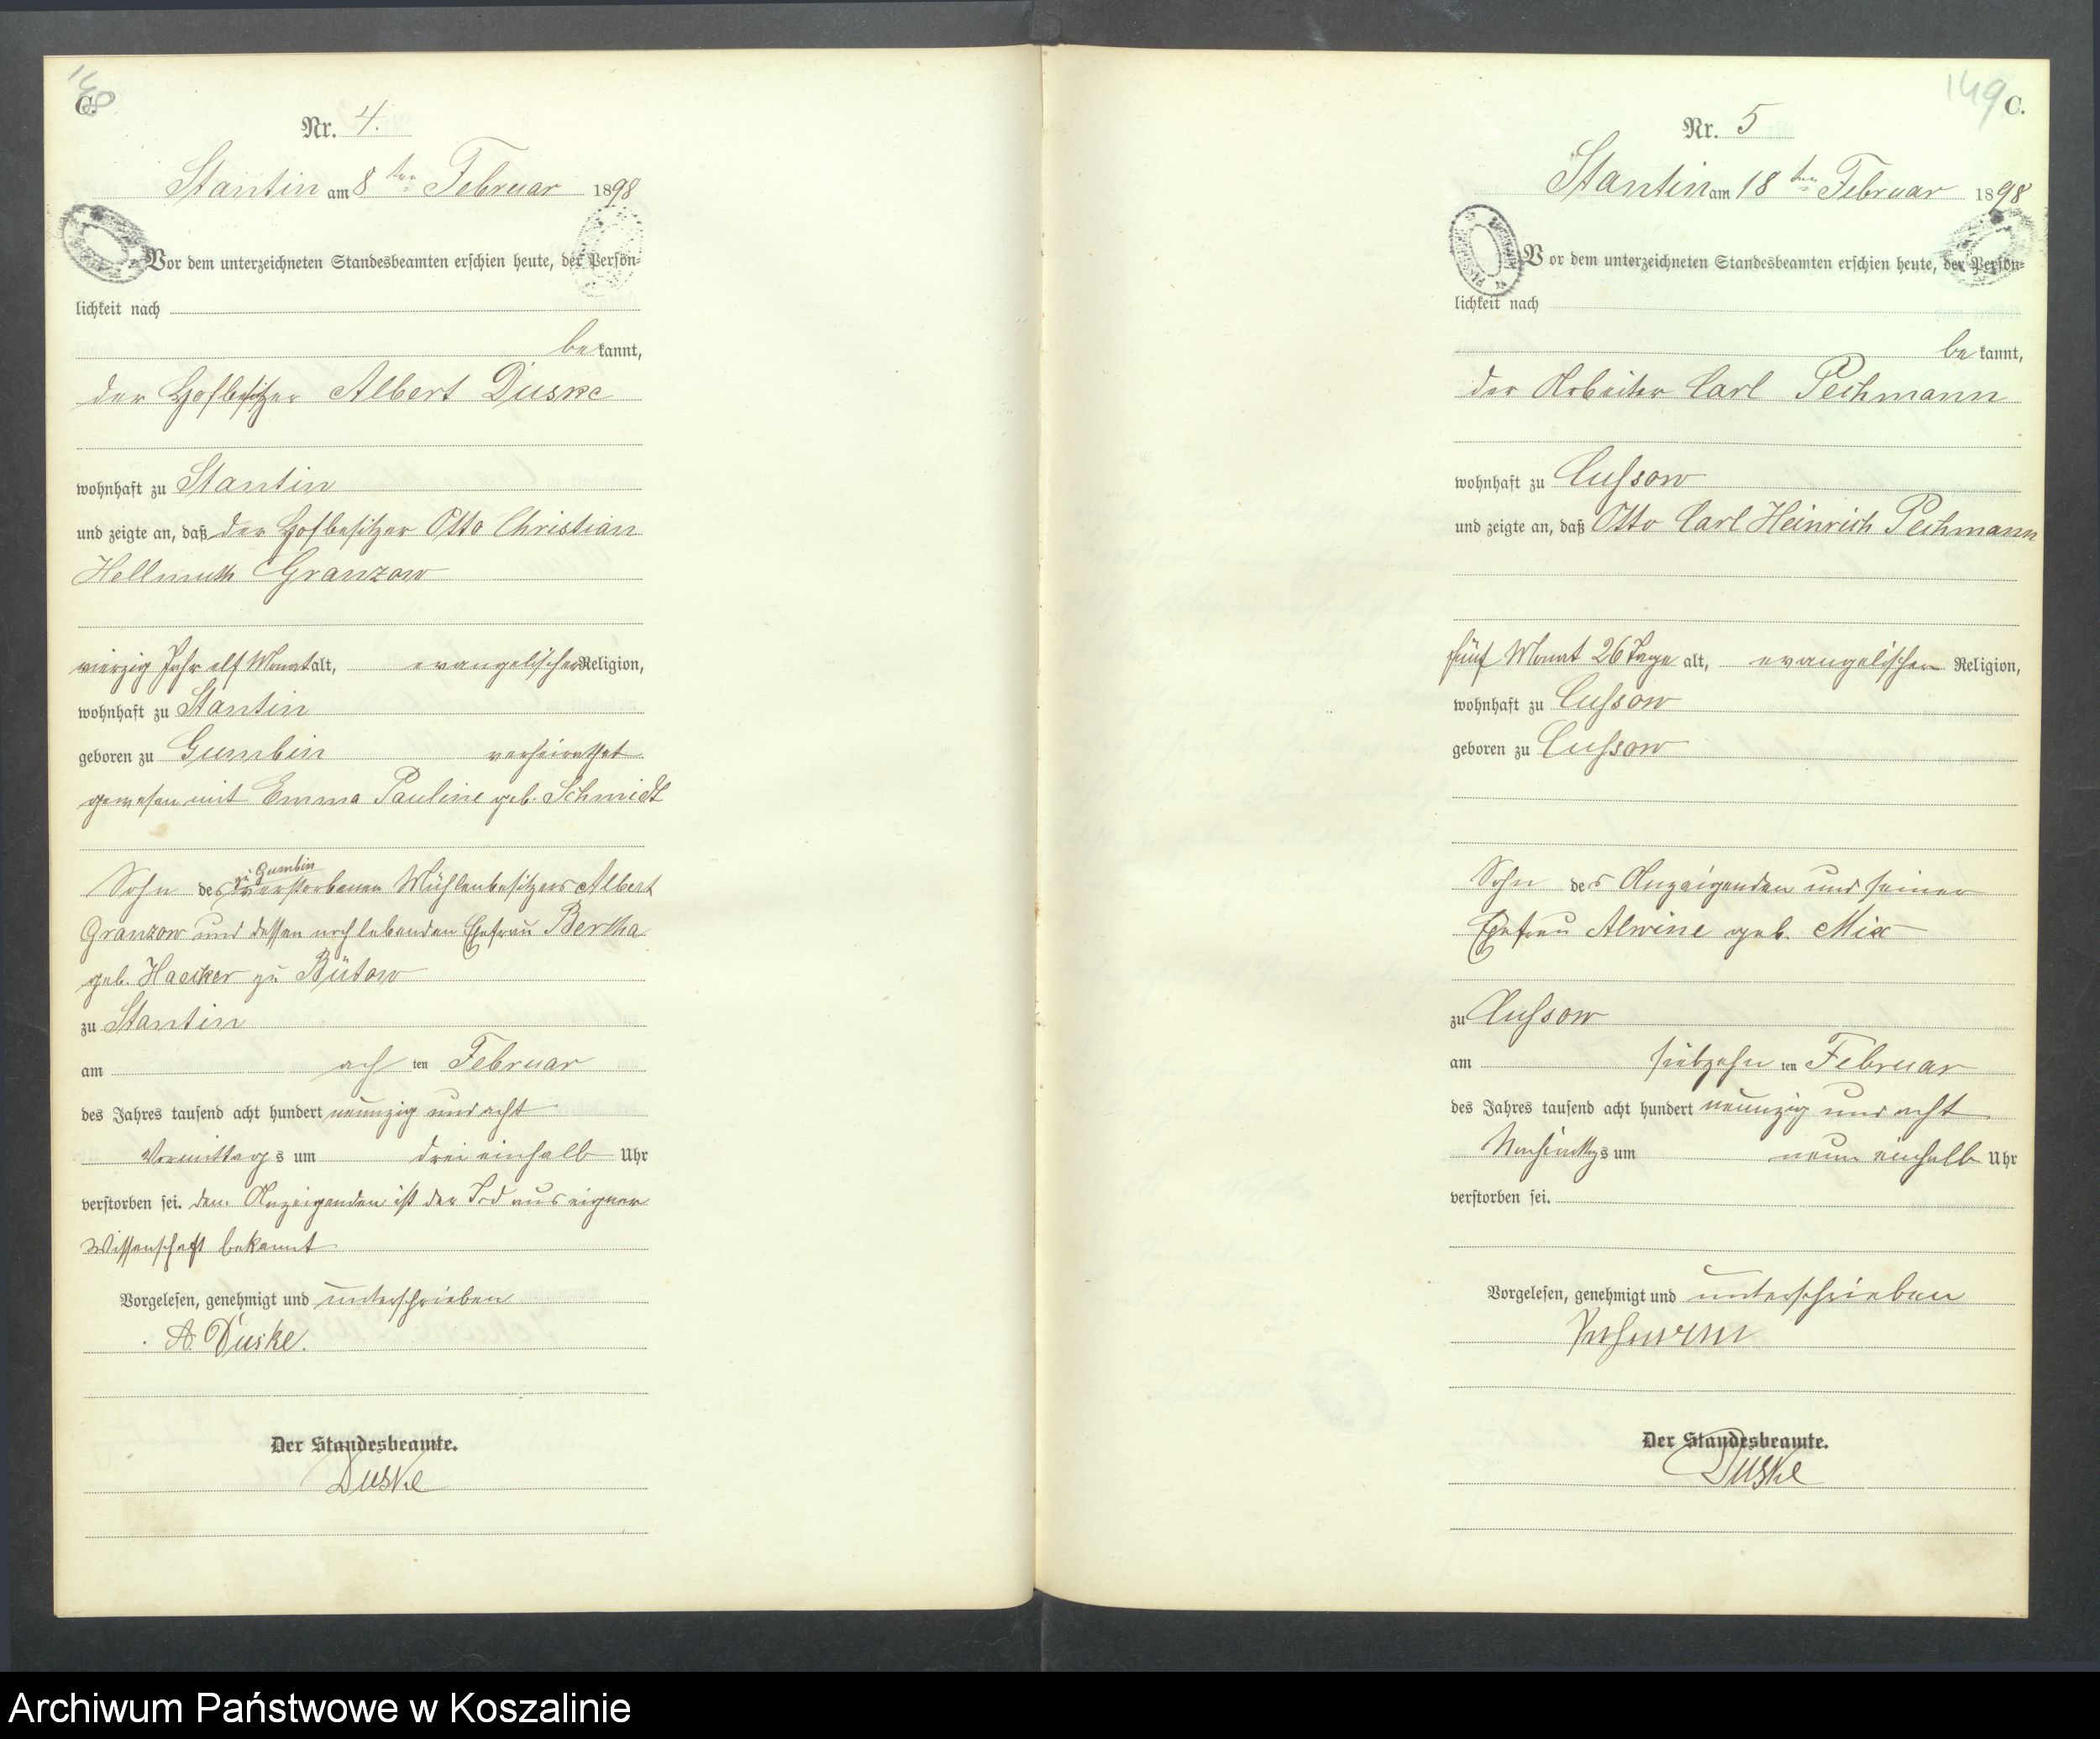 148
C.
Nr. 4.
Stantin am 8ten Februar 1898
Vor dem unterzeichneten Standesbeamten erschien heute, der Persön-
lichkeit nach
bekannt,
der Hofbesitzer Albert Duske
wohnhaft zu Stantin
und zeigte an, daß der Hofbesitzer Otto Christian
Hellmuth Granzow
vierzig Jahr elf Monat alt, evangelischer Religion,
wohnhaft zu Stantin
geboren zu Gumbin verheirathet
gewesen mit Emma Pauline geb. Schmidt
zu Gumbin
Sohn des verstorbenen Mühlenbesitzers Albert
Granzow und dessen noch lebenden Ehefrau Bertha
geb. Haecker zu Bütow
zu Stantin
am achten Februar
des Jahres tausend acht hundert neunzig und acht
Vormittags um drei einhalb Uhr
verstorben sei. dem Anzeigenden ist der Tod aus eigner
Wissenschaft bekannt
Vorgelesen, genehmigt und unterschrieben
A. Duske.
Der Standesbeamte.
Duske
149
C.
Nr. 5
Stantin am 18ten Februar 1898
Vor dem unterzeichneten Standesbeamten erschien heute, der Persön-
lichkeit nach
bekannt,
der Arbeiter Carl Pechmann
wohnhaft zu Cussow
und zeigte an, daß Otto Carl Heinrich Pechmann
fünf Monat 26 Tage alt, evangelischer Religion,
wohnhaft zu Cussow
geboren zu Cussow
Sohn des Anzeigenden und seiner
Ehefrau Alwine geb. Mix
zu Cussow
am siebzehnten Februar
des Jahres tausend acht hundert neunzig und acht
Nachmittags um neun einhalb Uhr
verstorben sei.
Vorgelesen, genehmigt und unterschrieben
Pechmann
Der Standesbeamte.
Duske
Archiwum Państwowe w Koszalinie